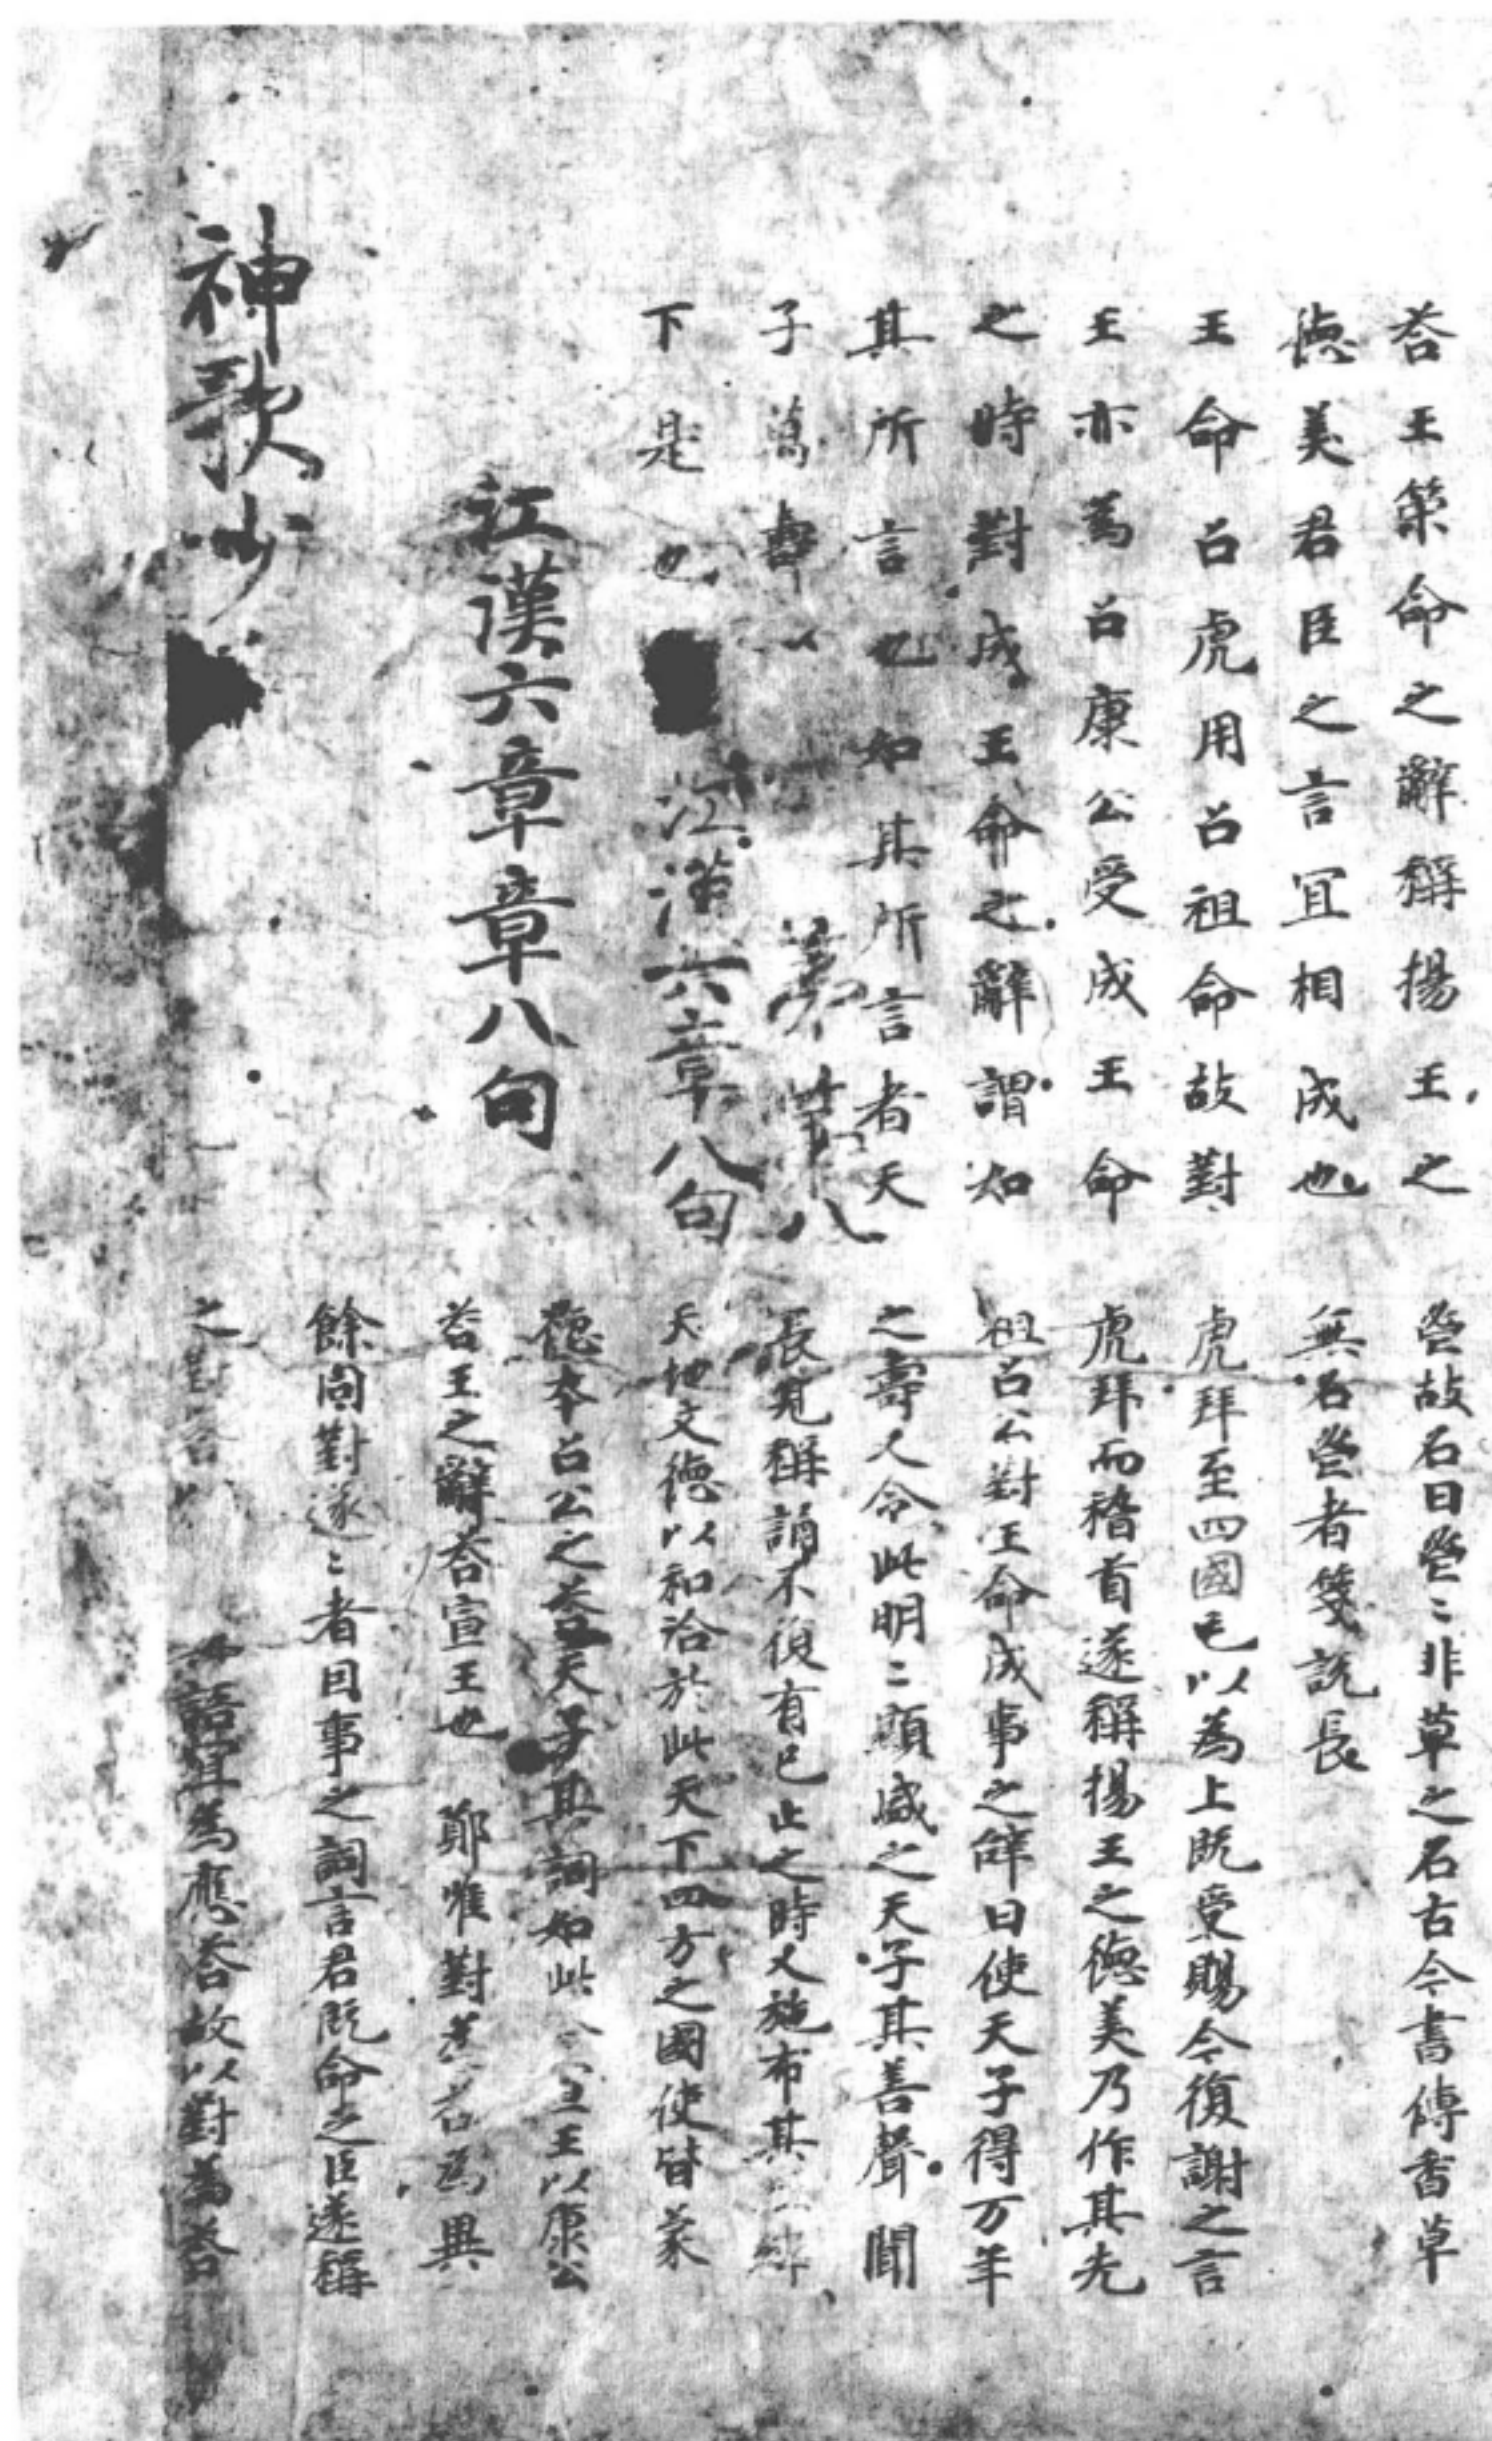 荅王策命之辭稱揚王之
德美君臣之言宜相成也
王命召虎用召祖命故對
王亦為召康公受成王命
之時對成王命之辭謂如
其所言也如其所言者天
子萬壽以
下是也
第廿八
江漢六章八句
江漢六章章八句
神歌抄
鬯故名曰鬯〻非草之名古今書傳香草
無名鬯者箋説長
虎拜至四國毛以為上既受賜今復謝之言
虎拜而稽首遂稱揚王之德美乃作其先
祖召公對王命成事之辞曰使天子得万年
之壽又令此明〻顯盛之天子其善聲聞
長見稱誦不復有已止之時又施布其經緯
天地文德以和洽於此天下四方之國使皆蒙
德本召公之荅天子其詞如此今宣王以康公
荅王之辭荅宣王也 鄭唯對荅為異
餘同對遂〻者因事之詞言君既命之臣遂稱
之對荅 語宜為應荅故以對為荅